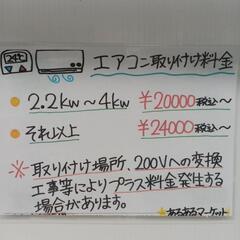 エアコン取り付け料金
2.2kw～4kw ¥20000税込～
それ以上 ¥24000税込～
※取り付け場所、200Vへの変換
工事等によりプラス料金発生する
場合があります。
★あるあるマーケット